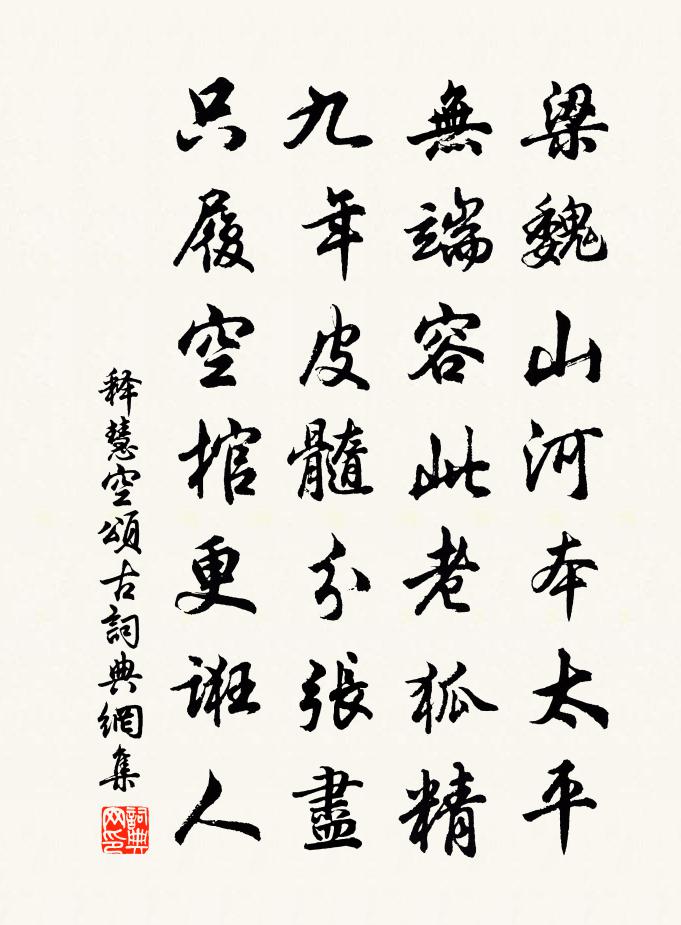 梁魏山河本太平
無端容此老狐精
九年皮髓分張盡
只履空棺更誑人
释慧空頌古詞典網集
詞典網印